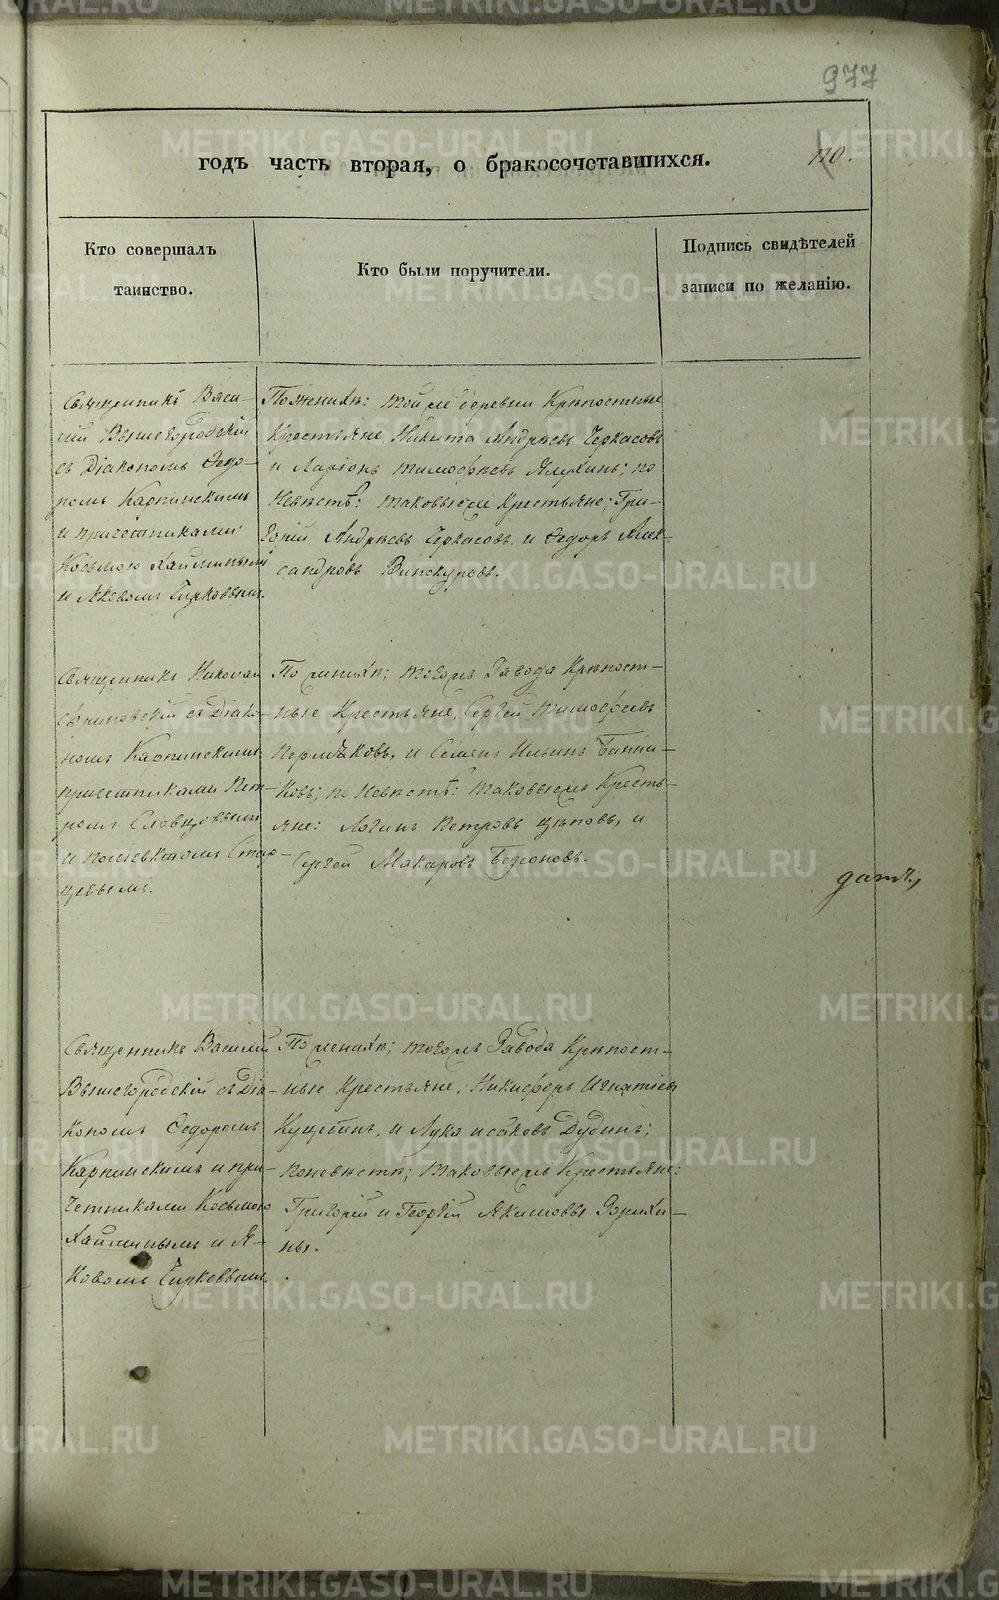 977
110.
годъ часть вторая, о бракосочставшихся.
Кто совершалъ
таинство.
Кто были поручители.
Подпись свидѣтелей
записи по желанію.
Священникъ Васи-
лій Вышегородскій
съ Діакономъ Ѳедо-
ромъ Карпинскимъ
и причетниками
Космою Хаминымъ
и Яковомъ Чирковымъ.
По женихѣ: той же деревни Крѣпостные
Крестьяне, Никита Андреевъ Черкасовъ
и Ларіонъ Тимофеевъ по
Невѣстѣ: таковые же Крестьяне; Гри-
горій Андреевъ Черкасовъ, и Ѳедоръ Алек-
сандровъ Винокуровъ.
Священникъ Николай
съ Діако-
номъ Карпинскимъ
причетниками Пет-
ромъ Словцовымъ
и Стар-
цевымъ.
По женихѣ; тогожъ Завода Крѣпост-
ные Крестьяне, Сергей Тимофеевъ
Пермяковъ, и Семенъ Ильинъ Банни-
ковъ; по Невѣстѣ: таковыежъ Кресть-
яне: Логинъ Петровъ и
Сергей Макаровъ
дать,
Священникъ Василій
Вышегородскій съ Діа-
кономъ Ѳедоромъ
Карпинскимъ и при-
четниками Космою
Хаминымъ и Я-
ковомъ Чирковымъ.
По женихѣ; тогожъ Завода Крѣпост-
ные Крестьяне, Никифоръ Игнатіевъ
и Лука Исаковъ Дудинъ;
по невѣстѣ; таковыежъ Крестьяне:
Григорій и Георгій Якимовы
ны.
METRIKI.GASO-URAL.RU